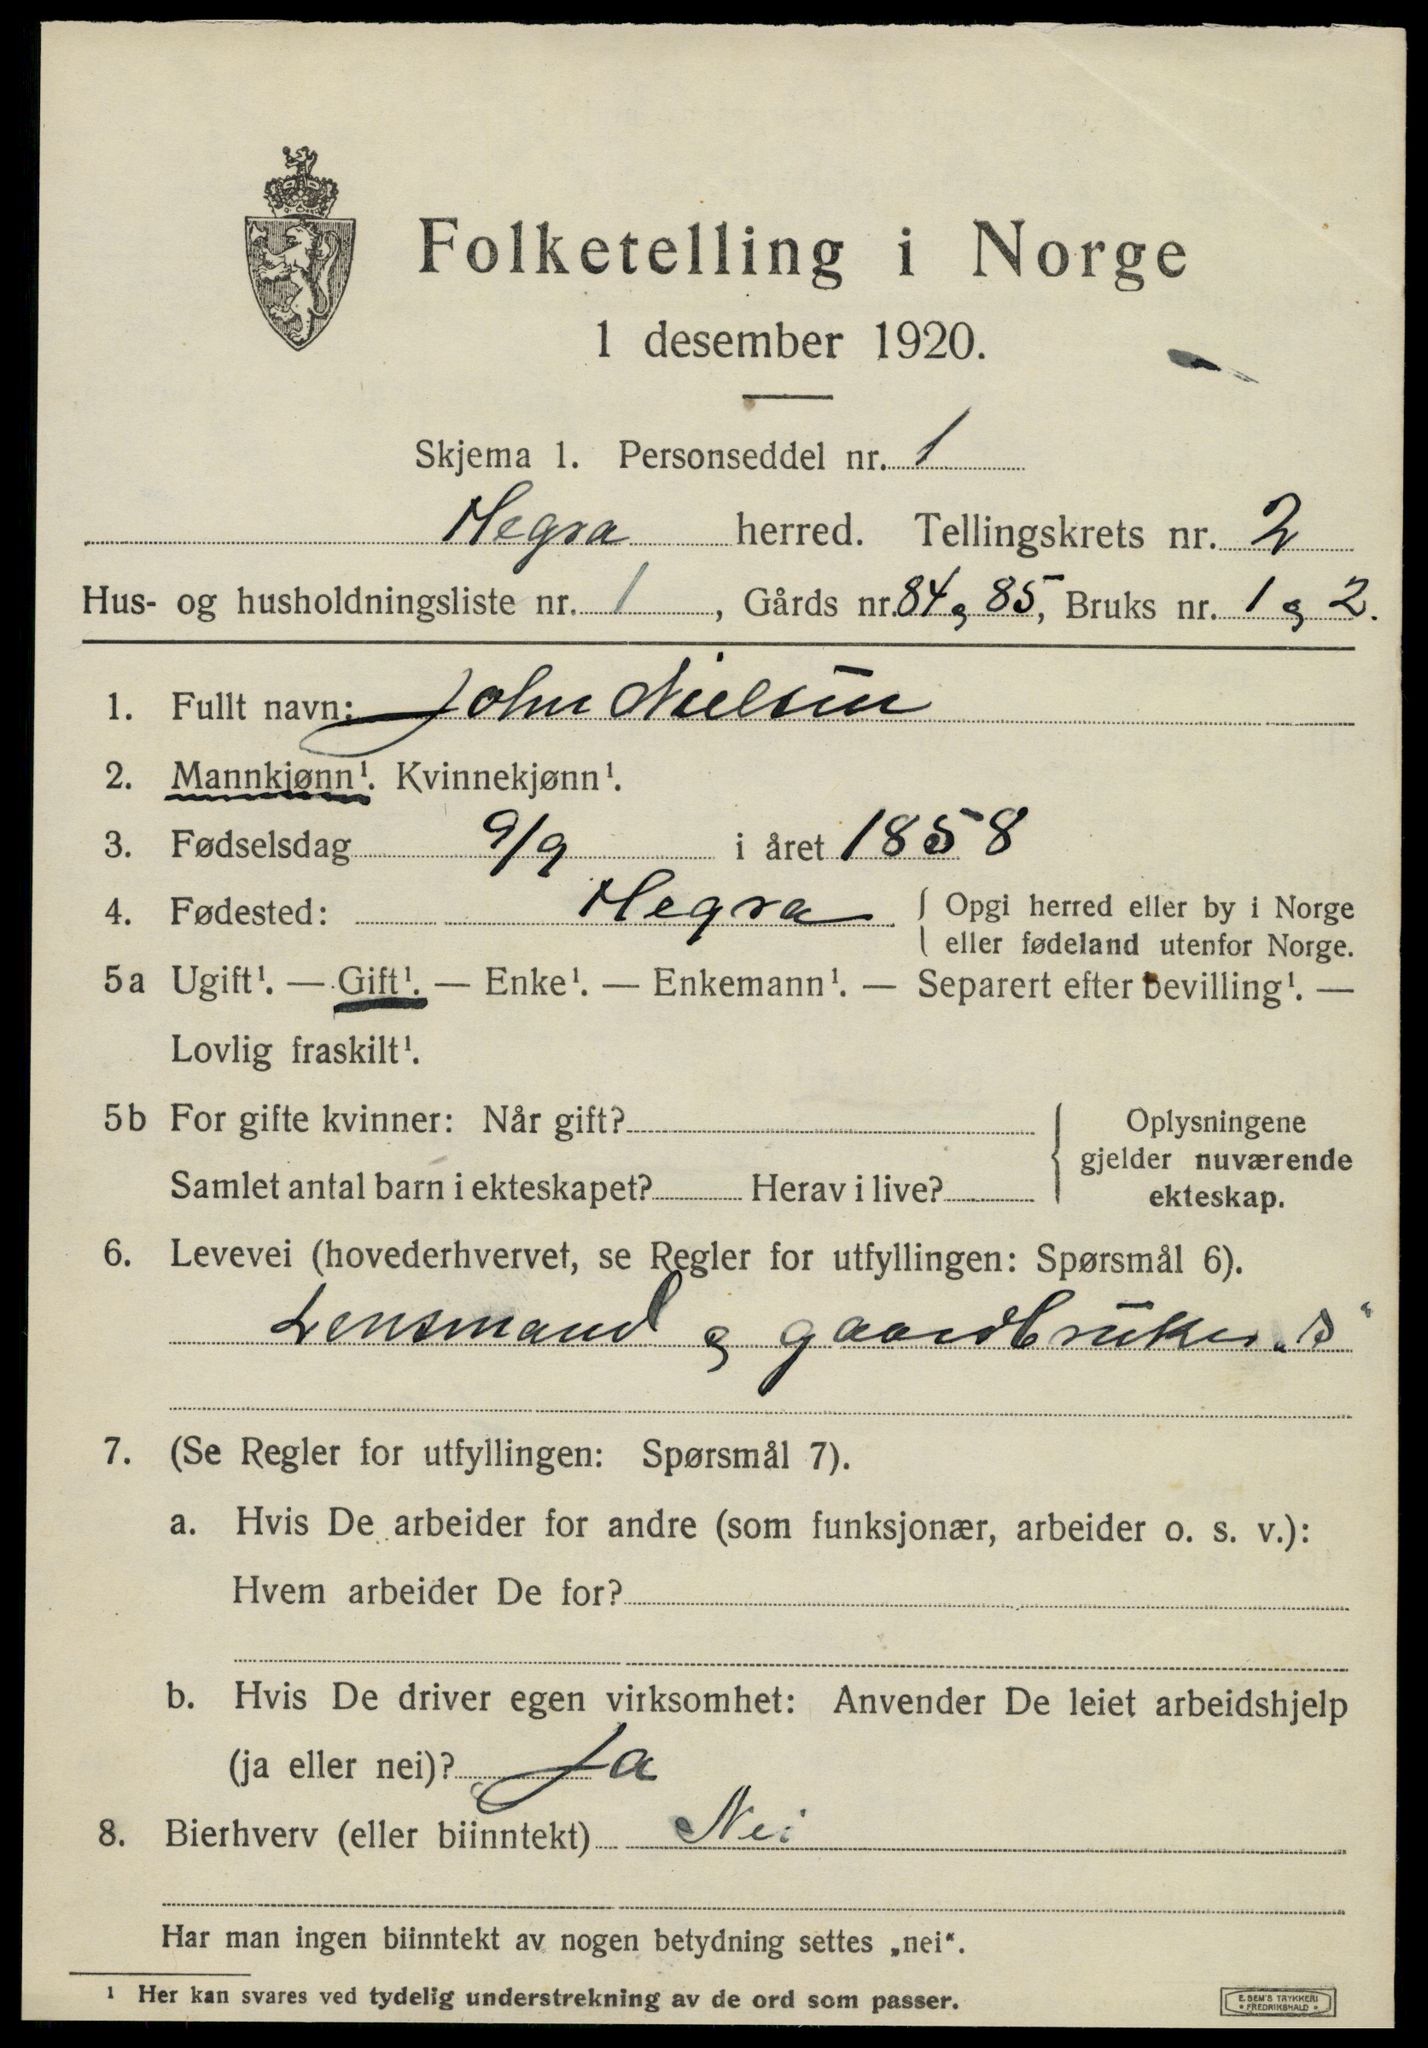 Folketelling i Norge
1 desember 1920.
Skjema 1. Personseddel nr. 1
Hegra herred. Tellingskrets nr. 2
Hus- og husholdningsliste nr. 1, Gårds nr. 84 og 85, Bruks nr. 1 og 2.
1. Fullt navn: John Nielsen
2. Mannkjønn¹. Kvinnekjønn¹.
3. Fødselsdag 9/9 i året 1858
4. Fødested: Hegra { Opgi herred eller by i Norge
eller fødeland utenfor Norge.
5a Ugift¹. — Gift¹. — Enke¹. — Enkemann¹. — Separert efter bevilling¹. —
Lovlig fraskilt¹.
5b For gifte kvinner: Når gift? { Oplysningene
gjelder nuværende
Samlet antal barn i ekteskapet? Herav i live? ekteskap.
6. Levevei (hovederhvervet, se Regler for utfyllingen: Spørsmål 6).
Lensmand og gaardbruker „s“
7. (Se Regler for utfyllingen: Spørsmål 7).
a. Hvis De arbeider for andre (som funksjonær, arbeider o. s. v.):
Hvem arbeider De for?
b. Hvis De driver egen virksomhet: Anvender De leiet arbeidshjelp
(ja eller nei)? Ja
8. Bierhverv (eller biinntekt) Nei
Har man ingen biinntekt av nogen betydning settes „nei“.
¹ Her kan svares ved tydelig understrekning av de ord som passer.
E. SEM'S TRYKKERI
• FREDRIKSHALD •